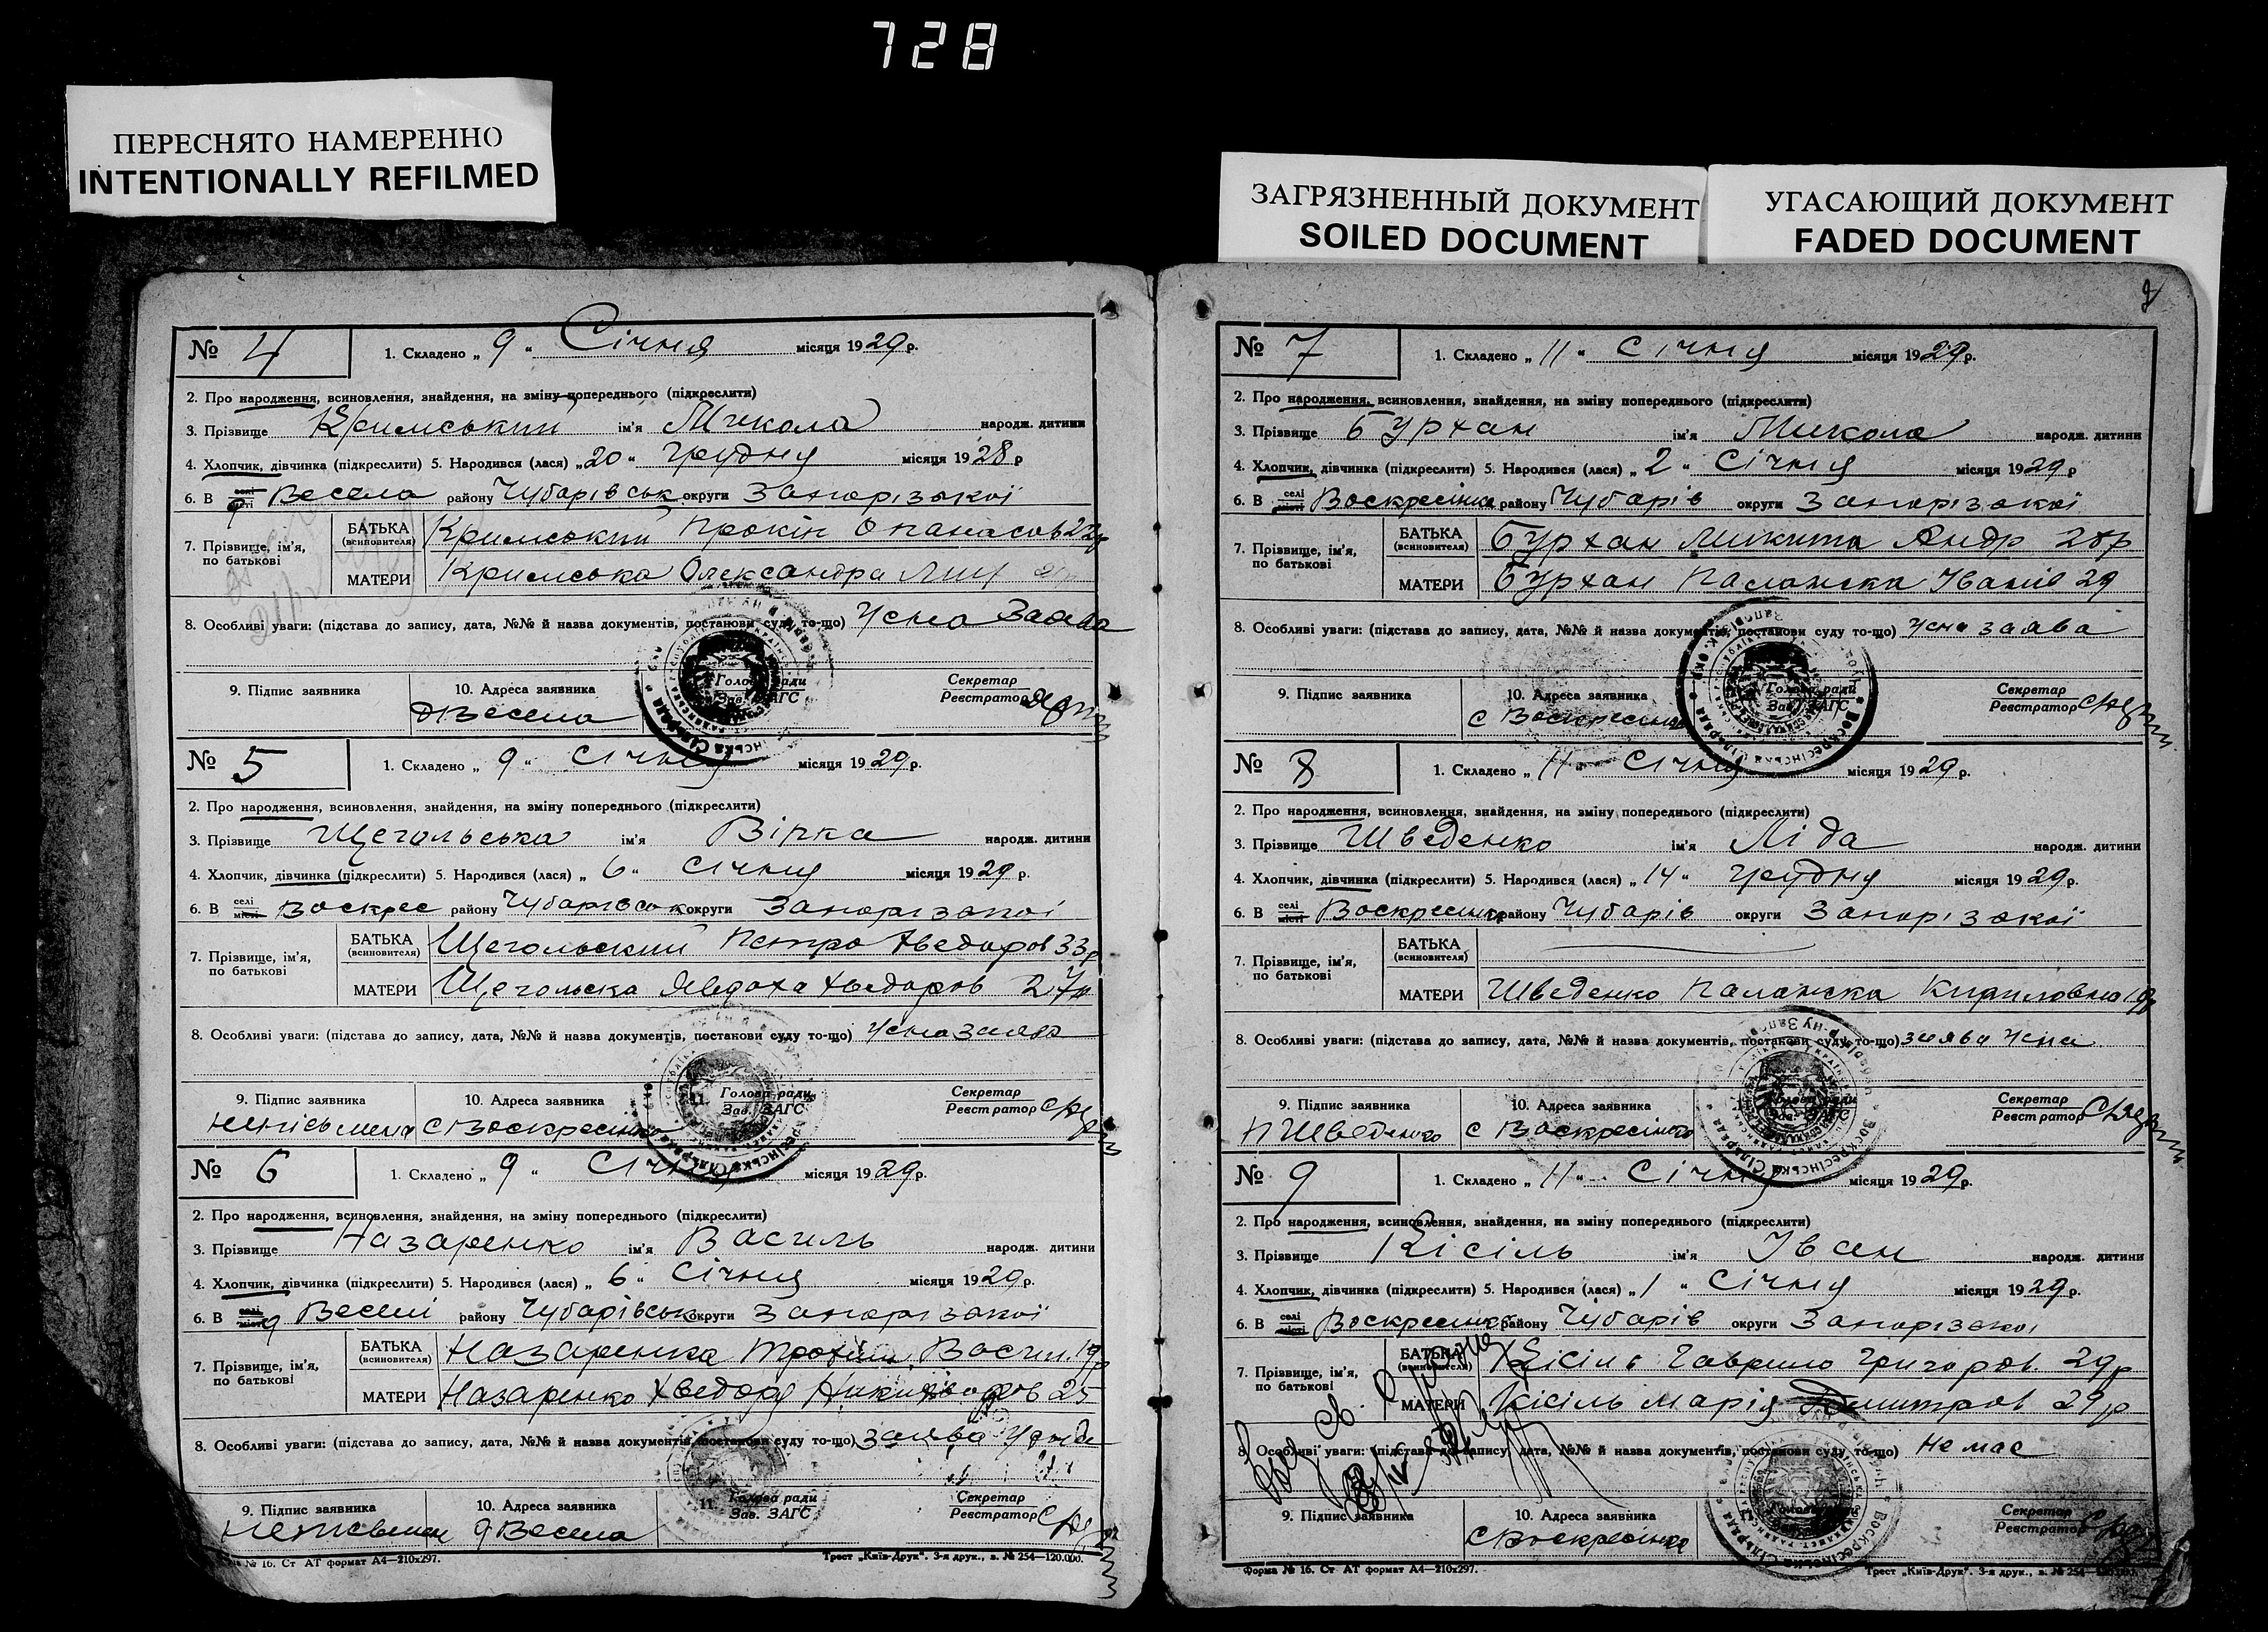 728
ПЕРЕСНЯТО НАМЕРЕННО
INTENTIONALLY REFILMED
ЗАГРЯЗНЕННЫЙ ДОКУМЕНТ
SOILED DOCUMENT
УГАСАЮЩИЙ ДОКУМЕНТ
FADED DOCUMENT
№ 4
1. Складено „ 9 “ Січня місяця 1929 р.
2. Про народження, всиновлення, знайдення, на зміну попереднього (підкреслити)
3. Прізвище Кримський ім'я Микола народж. дитини
4. Хлопчик, дівчинка (підкреслити) 5. Народився (лася) „ 20 “ Грудня місяця 1928 р
6. В селі місті Весела району Чубарівськ округи Запорізької
7. Прізвище, ім'я, по батькові
БАТЬКА (всиновителя) Кримський Прокіп Опанасов 22р
МАТЕРИ Кримська Олександра
8. Особливі уваги: (підстава до запису, дата, №№ й назва документів, постанови суду то-що) Усна Заява
9. Підпис заявника
10. Адреса заявника
Весела
Голова ради
Зав. ЗАГС
Секретар
Реєстратор
№ 5
1. Складено „ 9 “ Січня місяця 1929 р.
2. Про народження, всиновлення, знайдення, на зміну попереднього (підкреслити)
3. Прізвище Щегольська ім'я Вірка народж. дитини
4. Хлопчик, дівчинка (підкреслити) 5. Народився (лася) „ 6 “ Січня місяця 1929 р.
6. В селі місті Воскрес району Чубарівськ округи Запорізької
7. Прізвище, ім'я, по батькові
БАТЬКА (всиновителя) Щегольский Петро Хведоров 33р
МАТЕРИ Щегольска Явдоха Хведоров 27р
8. Особливі уваги: (підстава до запису, дата, №№ й назва документів, постанови суду то-що) Усна заява
9. Підпис заявника
10. Адреса заявника
с Воскресінка
11. Голова ради
Зав. ЗАГС
Секретар
Реєстратор
№ 6
1. Складено „ 9 “ Січня місяця 1929 р.
2. Про народження, всиновлення, знайдення, на зміну попереднього (підкреслити)
3. Прізвище Назаренко ім'я Василь народж. дитини
4. Хлопчик, дівчинка (підкреслити) 5. Народився (лася) „ 6 “ Січня місяця 1929 р.
6. В селі місті Веселі району Чубарівськ округи Запорізької
7. Прізвище, ім'я, по батькові
БАТЬКА (всиновителя) Назаренка Трохим Васил. 19р
МАТЕРИ Назаренко Хведора 25
8. Особливі уваги: (підстава до запису, дата, №№ й назва документів, постанови суду то-що) заява
9. Підпис заявника
10. Адреса заявника
Весела
11. Голова ради
Зав. ЗАГС
Секретар
Реєстратор
Форма № 16. Ст АТ формат А4—210х297.
Трест „Київ-Друк“. 3-я друк., з. № 254—120.000.
№ 7
1. Складено „ 11 “ Січня місяця 1929 р.
2. Про народження, всиновлення, знайдення, на зміну попереднього (підкреслити)
3. Прізвище Бурхан ім'я Микола народж. дитини
4. Хлопчик, дівчинка (підкреслити) 5. Народився (лася) „ 2 “ Січня місяця 1929 р
6. В селі місті Воскресінка району Чубарів округи Запорізької
7. Прізвище, ім'я, по батькові
БАТЬКА (всиновителя) Бурхан Микита Андр 28р
МАТЕРИ Бурхан Палажка Іванів 29
8. Особливі уваги: (підстава до запису, дата, №№ й назва документів, постанови суду то-що) Усна заява
9. Підпис заявника
10. Адреса заявника
с Воскресінка
Голова ради
Зав. ЗАГС
Секретар
Реєстратор
№ 8
1. Складено „ 11 “ Січня місяця 1929 р.
2. Про народження, всиновлення, знайдення, на зміну попереднього (підкреслити)
3. Прізвище Шведенко ім'я Ліда народж. дитини
4. Хлопчик, дівчинка (підкреслити) 5. Народився (лася) „ 14 “ Грудня місяця 1929 р.
6. В селі місті Воскресінка району Чубарів округи Запорізької
7. Прізвище, ім'я, по батькові
БАТЬКА (всиновителя)
МАТЕРИ Шведенко Палажка Кириловна 19р
8. Особливі уваги: (підстава до запису, дата, №№ й назва документів, постанови суду то-що) заява Усна
9. Підпис заявника
П Шведенко
10. Адреса заявника
с Воскресінка
Голова ради
Зав. ЗАГС
Секретар
Реєстратор
№ 9
1. Складено „ 11 “ Січня місяця 1929 р.
2. Про народження, всиновлення, знайдення, на зміну попереднього (підкреслити)
3. Прізвище Кісіль ім'я Іван народж. дитини
4. Хлопчик, дівчинка (підкреслити) 5. Народився (лася) „ 1 “ Січня місяця 1929 р.
6. В селі місті Воскресінка району Чубарів округи Запорізької
7. Прізвище, ім'я, по батькові
БАТЬКА (всиновителя) Кісіль Гаврило Григоров. 29р
МАТЕРИ Кісіль Марія Димитров 29р
8. Особливі уваги: (підстава до запису, дата, №№ й назва документів, постанови суду то-що) Немає
9. Підпис заявника
10. Адреса заявника
с Воскресінка
Секретар
Реєстратор
Форма № 16. Ст АТ формат А4—210х297.
Трест „Київ-Друк“. 3-я друк., з. № 254—120.000.